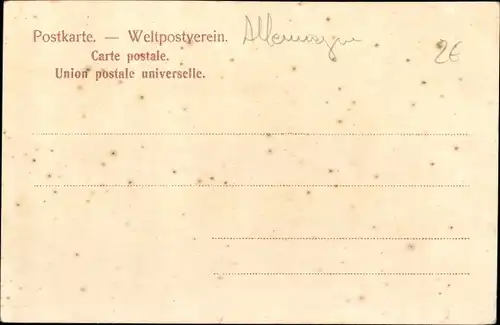 Postkarte. — Weltpostverein. Allemagne
2€
Carte postale.
Union postale universelle.